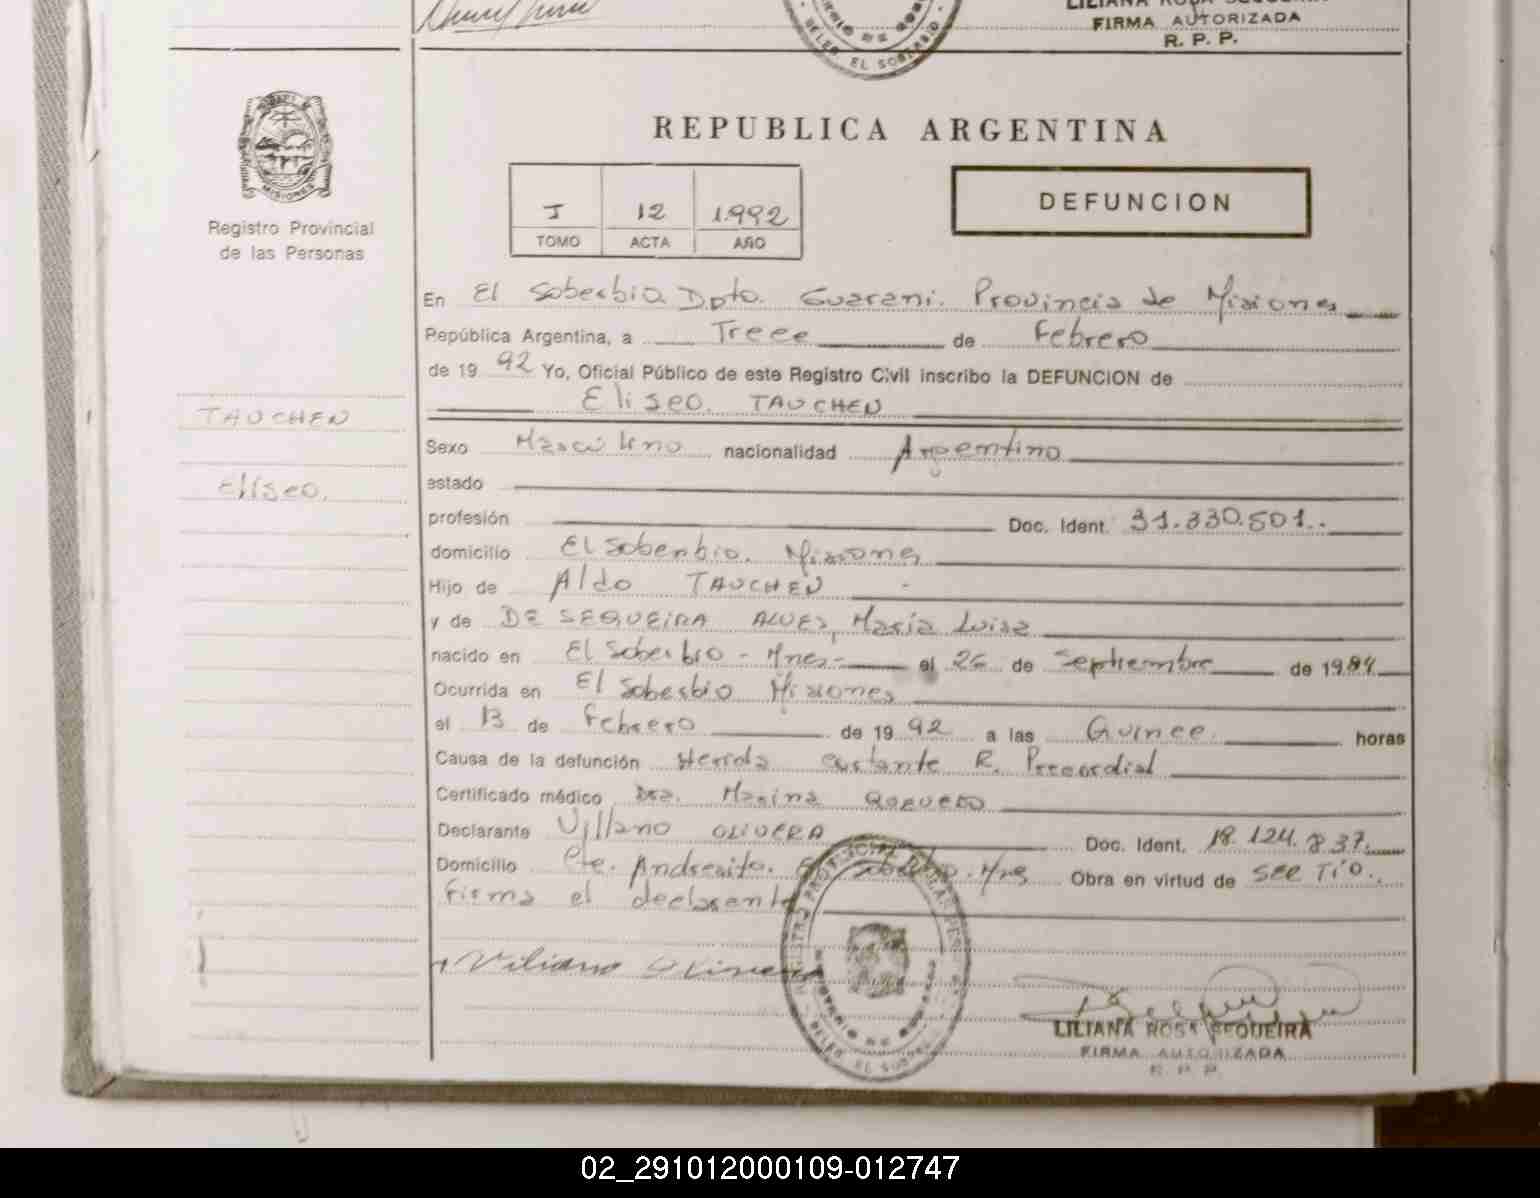 LILIANA ROSA SEQUEIRA
FIRMA AUTORIZADA
R. P. P.
EL SOBERBIO
MISIONES
Registro Provincial
de las Personas
REPUBLICA ARGENTINA
I 12 1992
TOMO ACTA AÑO
DEFUNCION
En El Soberbio Dpto. Guarani. Provincia de Misiones
República Argentina, a Trece de Febrero
de 19 92 Yo, Oficial Público de este Registro Civil inscribo la DEFUNCION de
Eliseo. TAUCHEN
TAUCHEN
Sexo Masculino nacionalidad Argentino
Eliseo.
estado
profesión Doc. Ident. 31.330.501..
domicilio El Soberbio. Misiones
Hijo de Aldo TAUCHEN
y de DE SEQUEIRA ALVES, Maria Luisa
nacido en El Soberbio - Mnes - el 26 de Septiembre de 1984
Ocurrida en El Soberbio Misiones
el 13 de Febrero de 19 92 a las Quince. horas
Causa de la defunción Herida cortante R. Precordial
Certificado médico Dra. Marina QUEVEDO
Declarante Villano OLIVERA Doc. Ident. 18.124.837.
Domicilio Cte. Andresito. El Soberbio. Mnes Obra en virtud de ser Tío.
Firma el declarante
Viliano Olivera
LILIANA ROSA SEQUEIRA
FIRMA AUTORIZADA
R. P. P.
02_291012000109-012747